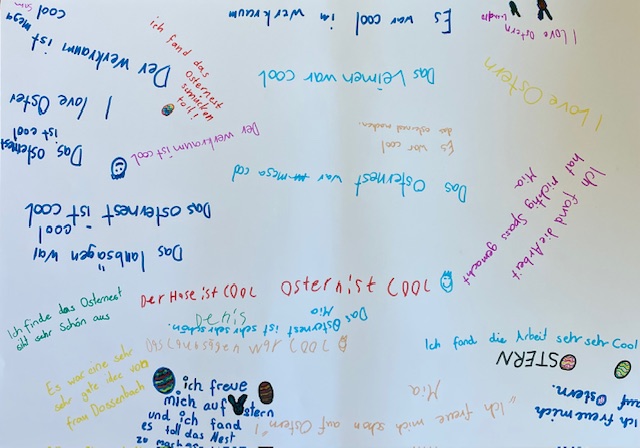 Es war cool im werkraum
mega
cool
Der Werkraum ist
ich fand das
Osternest
toll!
I love Ostern
I love Ostern
Das Leimen war cool
I love Oster
Es war cool
Das osternest
ist cool
Der werkraum ist cool
Das Osternest war mega cool
Ich fand die Arbeit
hat richtig Spass gemacht
Mia
Das osternest ist cool
Das laubsägen war
cool
Der Hase ist COOL
Ostern ist COOL
Ich finde das Osternest
seht sehr schön aus
Denis
Das Osternest ist sehr schön.
Mia
Ich fand die Arbeit sehr sehr Cool
OSTERN
Es war eine sehr
gute idee von
frau Dossenbach
ich freue
mich auf Ostern
und ich fand
es toll das Nest
zu machen
"Ich freue mich schon auf Ostern!"
Mia
ich freue mich
auf Ostern.